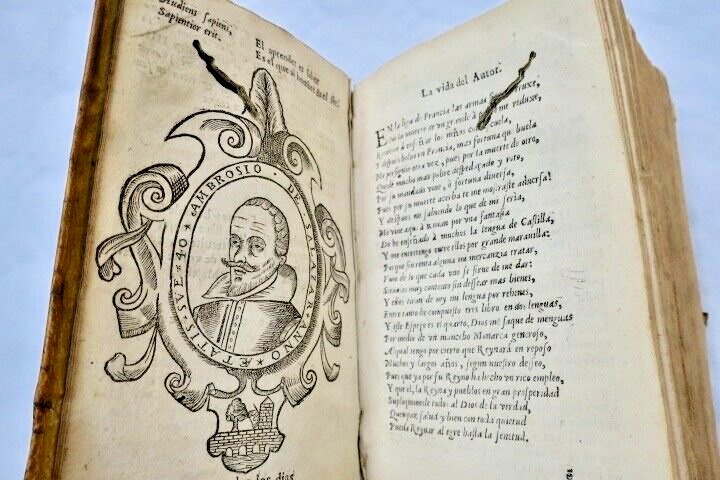 Audiens sapiens,
Sapientior erit.
El aprender es saber
Es el que al hombre da el ser.
AMBROSIO · DE · SALAZAR · ANNO ★ ÆTATIS · SVE · 40 ★
La vida del Autor.
EN la liga de Francia las armas
la muerte de vn grande à me reduxe,
Boluime à enseñar los niños escuela,
Y despues bolui en Francia, mas fortuna que buela
Me persiguio otra vez, pues por la muerte de otro,
Quede mucho mas pobre despedaçado y roto,
Por su mandado vine, ô fortuna diuersa,
Pues por su muerte acerba te me mostraste aduersa!
Y despues no sabiendo lo que de mi seria,
Me vine aqui à Roüan por via fantasia
Do he enseñado à muchos la lengua de Castilla,
Y me entretengo entre ellos por grande marauilla:
Porque sin renta alguna ni mercanzia tratar,
Viuo de lo que cada vno se sirue de me dar:
Siruolos muy contento sin dessear mas bienes,
Y ellos taran de my mi lengua por rehenes,
Entre tanto he compuesto tres libros en dos lenguas,
Y este Espejo es el quarto, Dios me saque de menguas
Por medio de vn mancebo Monarca generoso,
Al qual tengo por cierto que Reynará en reposo
Muchos y largos años, segun nuestro desseo,
Pues que ya por su Reyno ha hecho vn rico empleo,
Y que él, la Reyna y pueblos en gran prosperidad
Supliquemosle todos al Dios de la verdad,
Que en paz salud y bien con toda quietud
Pueda Reynar alegre hasta la senitud.
los dias